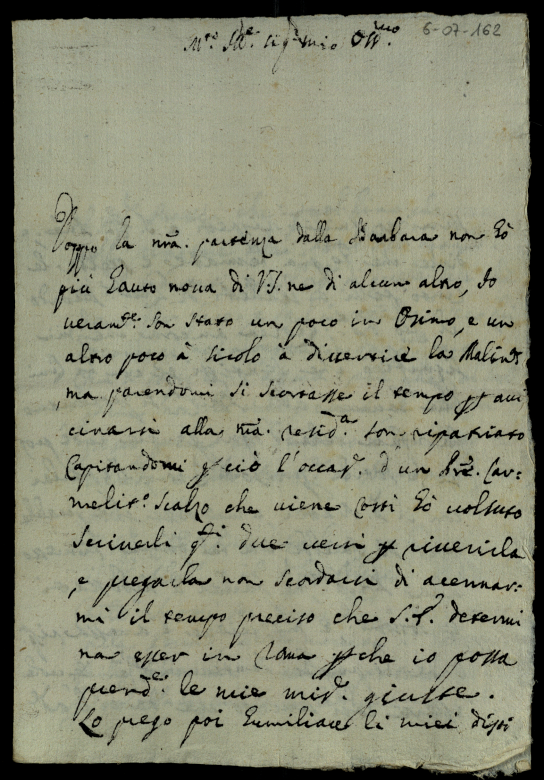 6-07-162
Mto Ille. Sigr mio Ossmo.
Doppo la nra. partenza dalla Barbara non hò
più hauto nova di V.S. ne di alcun altro, Io
veramte. son stato un poco in Osimo, e un
altro poco à Sirolo à divertire la
ma parendomi si scortasse il tempo p avi
cinarsi alla residza son ripatriato
Capitandomi p ciò l'occase. d'un Car=
melito. scalzo che viene costì hò voluto
scriverli qti. due versi p riverirla
, e pregarla non scordarsi di acennar=
mi il tempo preciso che determi
na esser in p che io possa
prende. le mie mise. giuste.
Lo prego poi humiliare li miei